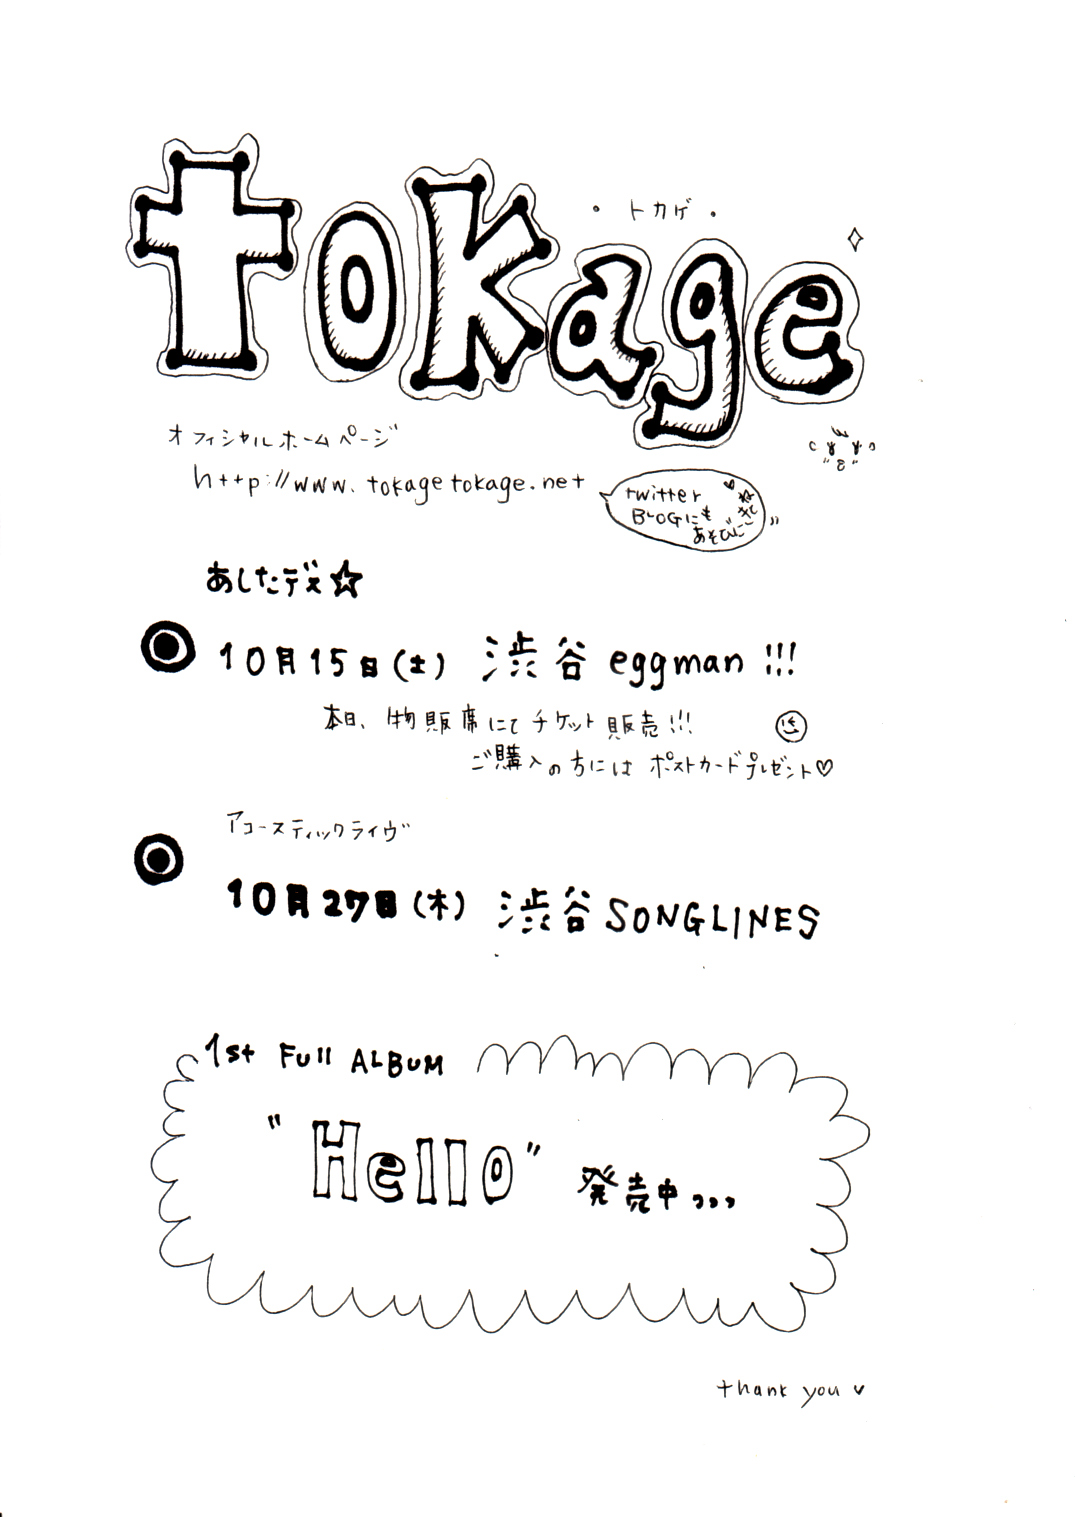 tokage
・トカゲ・
オフィシャルホームページ
http://www.tokagetokage.net
twitter
BLOGにも
あそびにきてね♥
あしたデス☆
10月15日(土) 渋谷 eggman !!!
本日、物販席にてチケット販売!!!
ご購入の方にはポストカードプレゼント♡
アコースティックライヴ
10月27日(木) 渋谷 SONGLINES
1st Full ALBUM
"Hello" 発売中,,,
thank you ♥